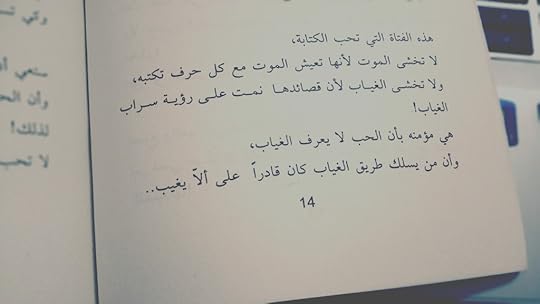 هذه الفتاة التي تحب الكتابة،
لا تخشى الموت لأنها تعيش الموت مع كل حرف تكتبه،
ولا تخشى الغياب لأن قصائدها نمت على رؤية سراب
الغياب!
هي مؤمنه بأن الحب لا يعرف الغياب،
وأن من يسلك طريق الغياب كان قادراً على ألاّ يغيب..
14
وأن الح
لذلك!
لا تحب